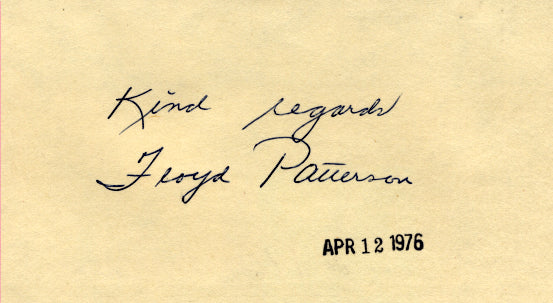 Kind regards
Floyd Patterson
APR 12 1976